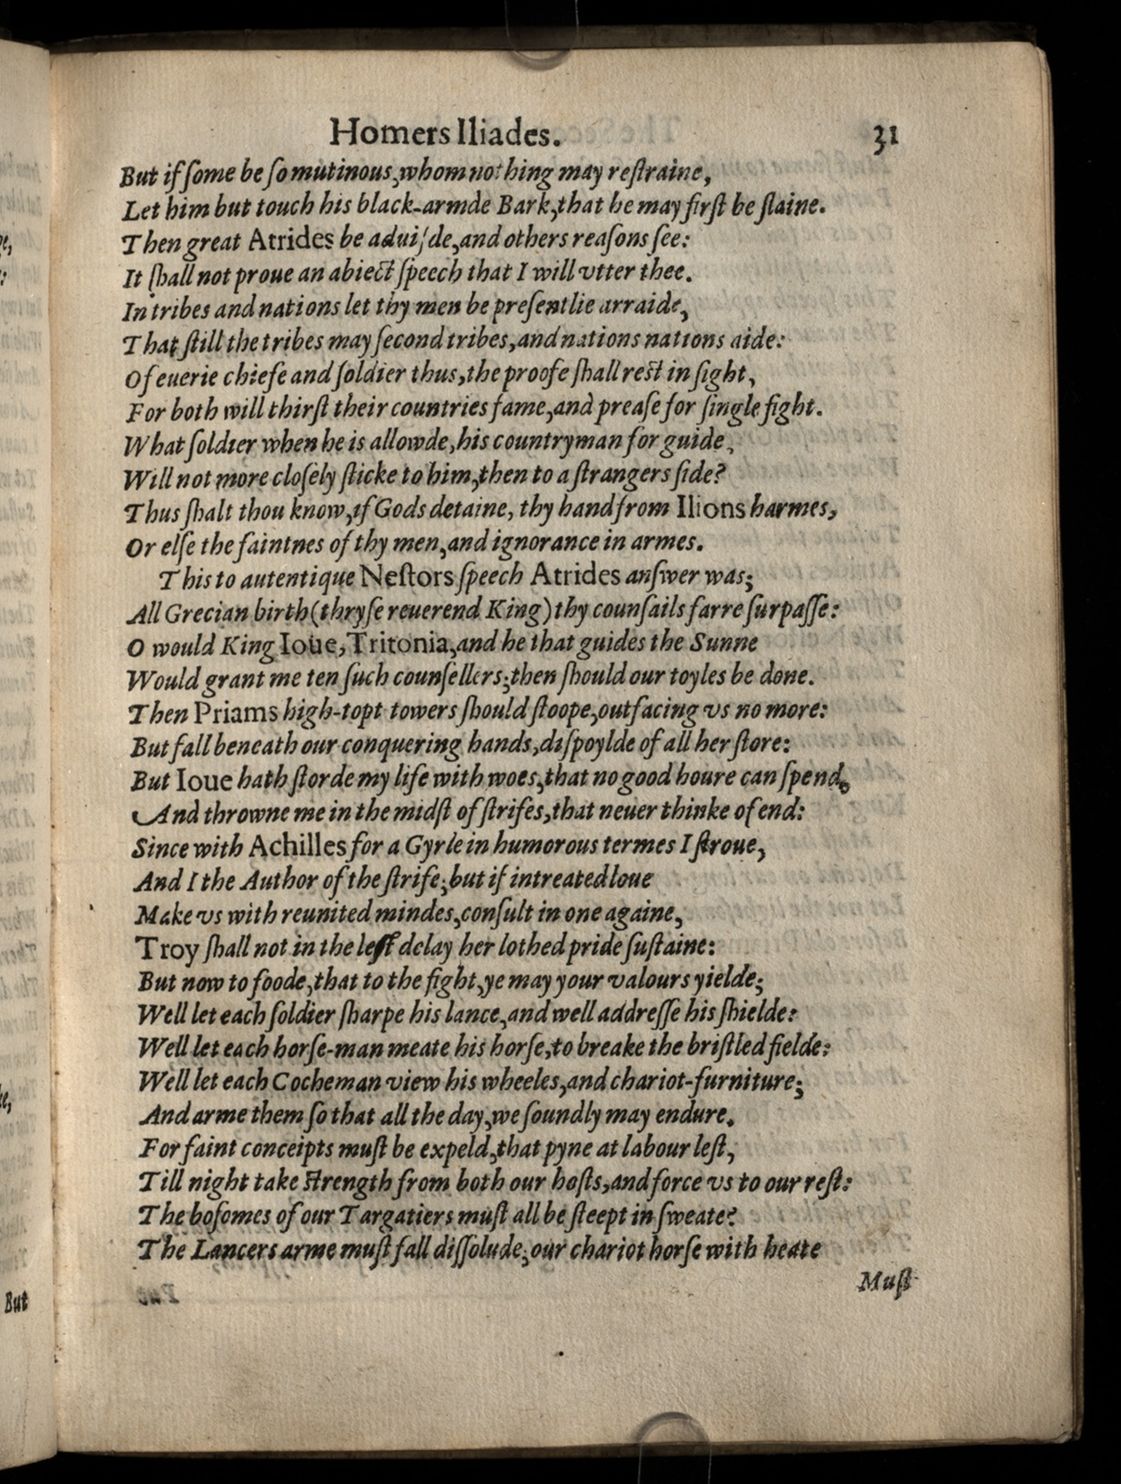 Homers Iliades. 31
But if ſome be ſo mutinous, whom nothing may reſtraine,
Let him but touch his black-armde Bark, that he may firſt be ſlaine.
Then great Atrides be aduiſde, and others reaſons ſee:
It ſhall not proue an abiect ſpeech that I will vtter thee.
In tribes and nations let thy men be preſentlie arraide,
That ſtill the tribes may ſecond tribes, and nations nations aide:
Of euerie chiefe and ſoldier thus, the proofe ſhall reſt in ſight,
For both will thirſt their countries fame, and preaſe for ſingle fight.
What ſoldier when he is allowde, his countryman for guide,
Will not more cloſely ſticke to him, then to a ſtrangers ſide?
Thus ſhalt thou know, if Gods detaine, thy hand from Ilions harmes,
Or elſe the faintnes of thy men, and ignorance in armes.
This to autentique Neſtors ſpeech Atrides anſwer was;
All Grecian birth (thryſe reuerend King) thy counſails farre ſurpaſſe:
O would King Ioue, Tritonia, and he that guides the Sunne
Would grant me ten ſuch counſellers; then ſhould our toyles be done.
Then Priams high-topt towers ſhould ſtoope, outfacing vs no more:
But fall beneath our conquering hands, diſpoylde of all her ſtore:
But Ioue hath ſtorde my life with woes, that no good houre can ſpend,
And throwne me in the midſt of ſtrifes, that neuer thinke of end:
Since with Achilles for a Gyrle in humorous termes I ſtroue,
And I the Author of the ſtrife; but if intreated loue
Make vs with reunited mindes, conſult in one againe,
Troy ſhall not in the leſt delay her lothed pride ſuſtaine:
But now to foode, that to the fight, ye may your valours yielde;
Well let each ſoldier ſharpe his lance, and well addreſſe his ſhielde:
Well let each horſe-man meate his horſe, to breake the briſtled fielde:
Well let each Cocheman view his wheeles, and chariot-furniture;
And arme them ſo that all the day, we ſoundly may endure.
For faint conceipts muſt be expeld, that pyne at labour leſt,
Till night take ſtrength from both our hoſts, and force vs to our reſt:
The boſomes of our Targatiers muſt all be ſteept in ſweate:
The Lancers arme muſt fall diſſolude; our chariot horſe with heate
Muſt
But